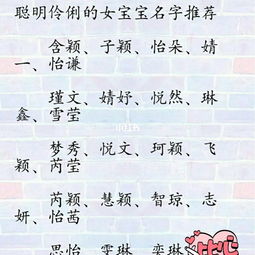 聪明伶俐的女宝宝名字推荐
含颖、子颖、怡朵、婧
一、怡谦
瑾文、婧妤、悦然、琳
鑫、雪莹
梦秀、悦文、珂颖、飞
颖、芮莹
芮颖、慧颖、智琼、志
妍、怡茜
思怡、雯琳、奕琳
比心